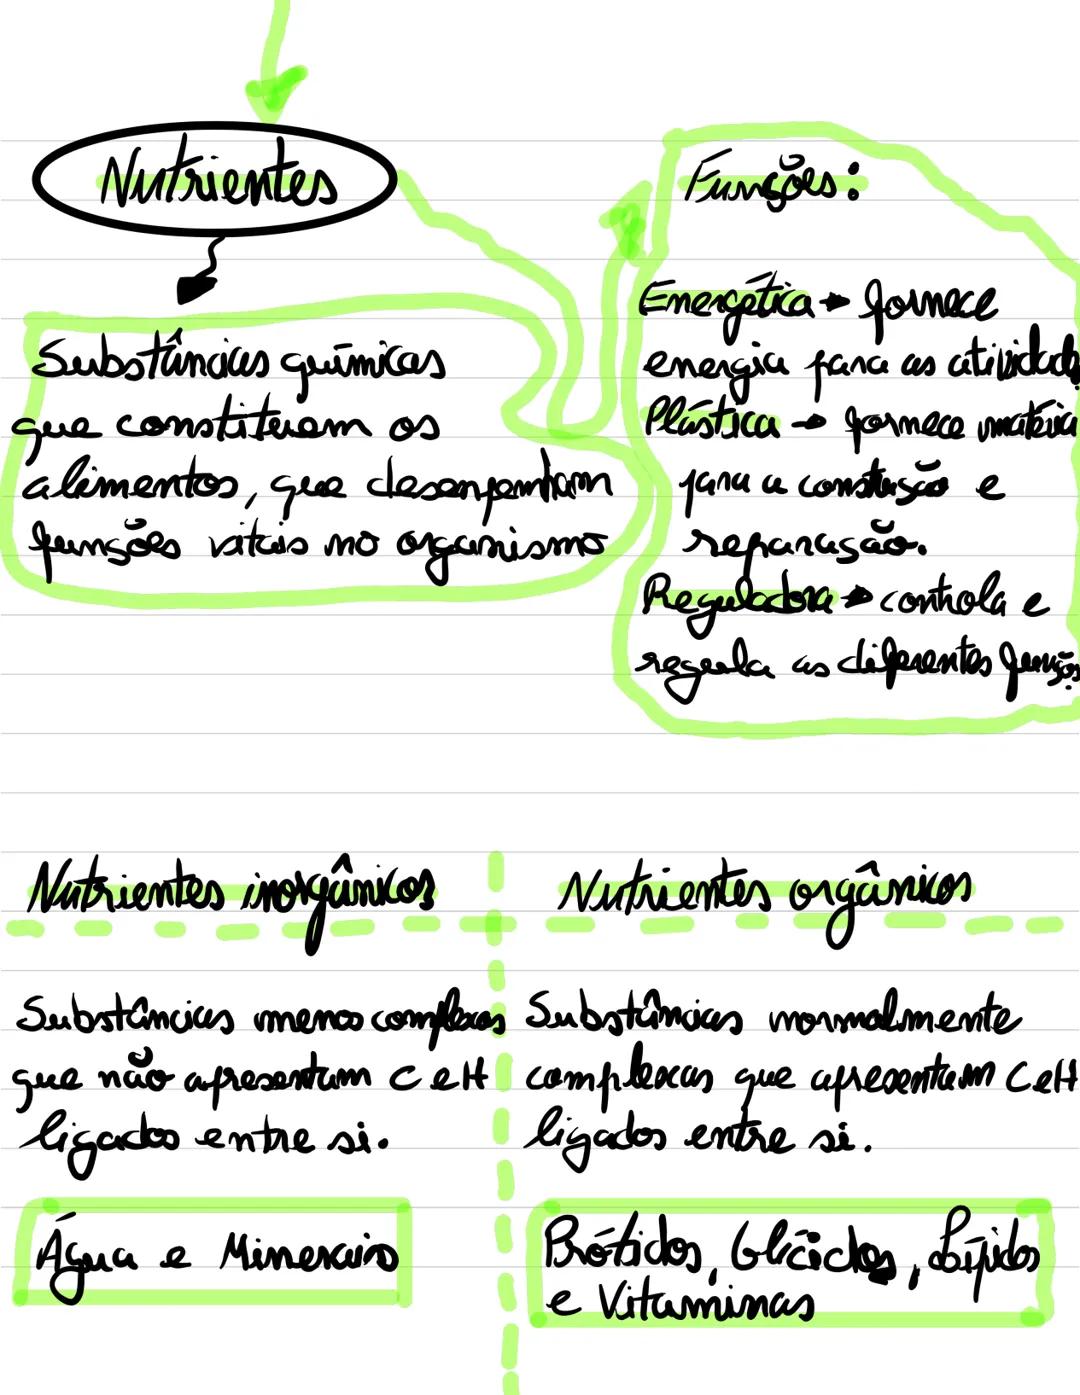 Nutrientes
Substâncias químicas
que constituem os
alimentos, que desempenham
funções vitais no organismo
Funções:
Energética → fornece
energia para as atividad
Plástica → fornece matéria
para a construção e
reparação.
Reguladora → controla e
regula as diferentes funções
Nutrientes inorgânicos
Substâncias menos complexas
que não apresentam C e H
ligados entre si.
Água e Minerais
Nutrientes orgânicos
Substâncias normalmente
complexas que apresentam C e H
ligados entre si.
Prótidos, Glícidos, Lípidos
e Vitaminas